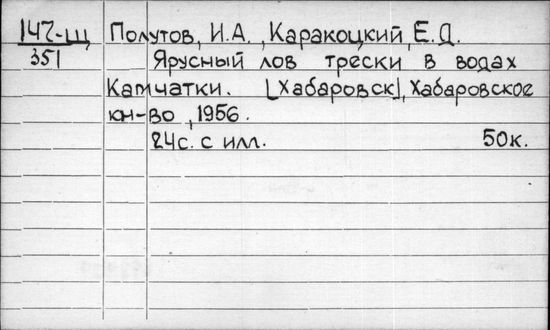 147-щ Полутов, И.А., Каракоцкий, Е.Д.
351 Ярусный лов трески в водах
Камчатки. [Хабаровск], Хабаровское
кн-во, 1956.
24с. с илл. 50к.